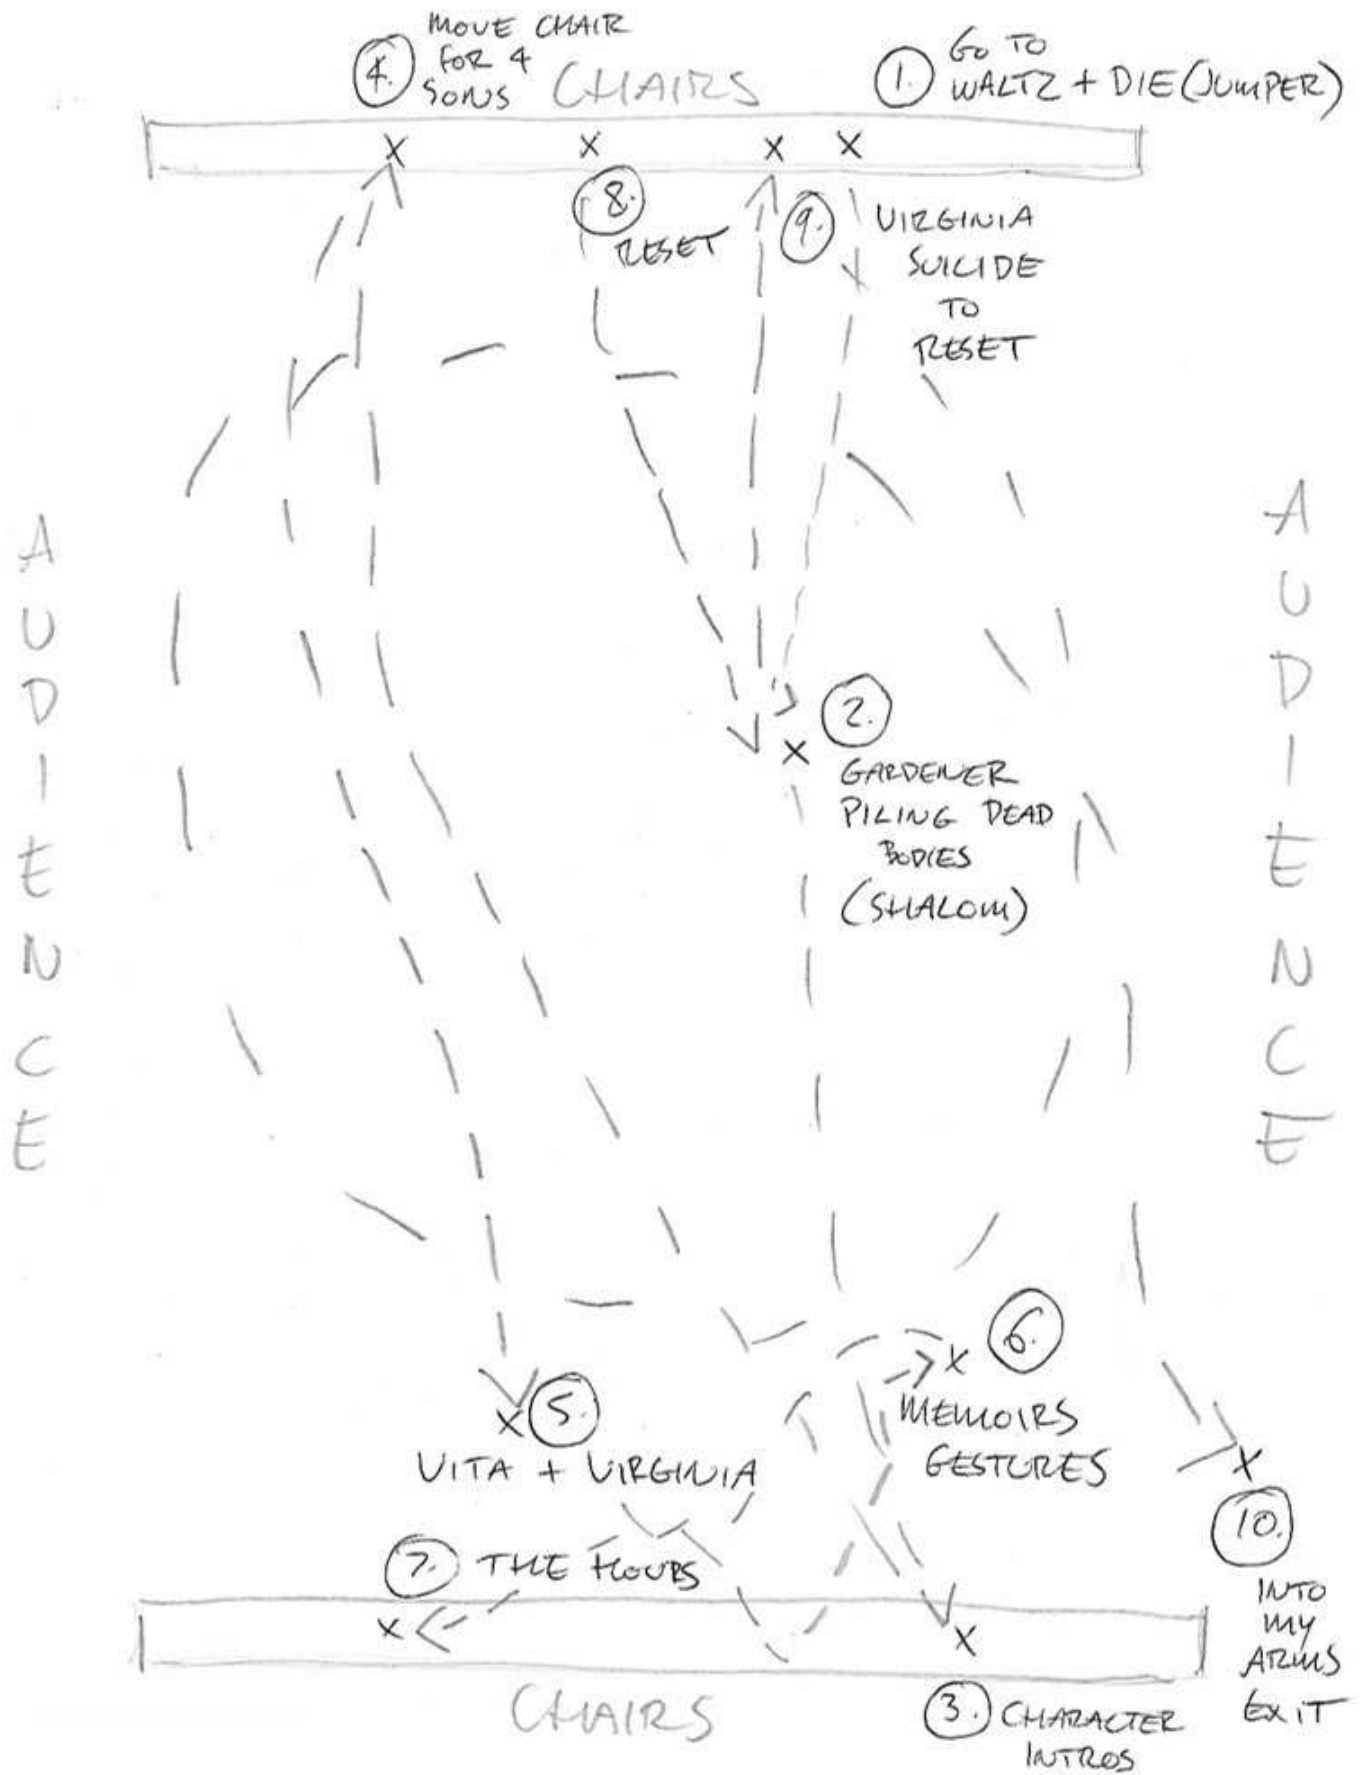 MOVE CHAIR
FOR 4
4. SONS
CHAIRS
1. GO TO
WALTZ + DIE (JUMPER)
X X X X
8.
RESET
9. VIRGINIA
SUICIDE
TO
RESET
AUDIENCE
AUDIENCE
2.
X
GARDENER
PILING DEAD
BODIES
(SHALOM)
X 6.
MEMOIRS
GESTURES
X 5.
VITA + VIRGINIA
X
10.
INTO
MY
ARMS
EXIT
7. THE HOURS
X X
CHAIRS
3. CHARACTER
INTROS